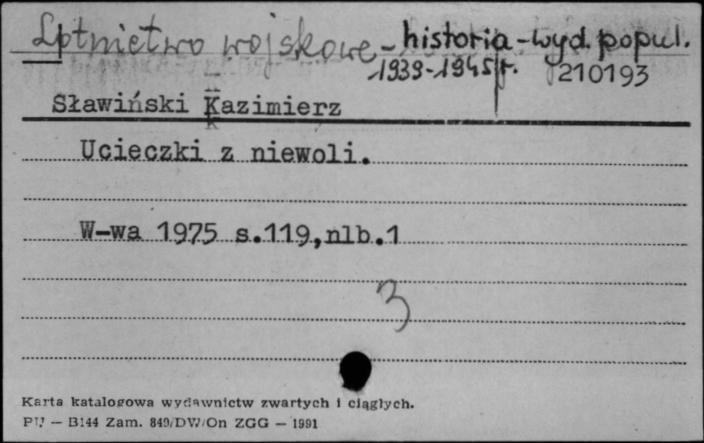 Lotnictwo wojskowe - historia - wyd. popul.
1939-1945 r. 210193
Sławiński Kazimierz
Ucieczki z niewoli.
W-wa 1975 s.119,nlb.1
3
Karta katalogowa wydawnictw zwartych i ciągłych.
PU — B144 Zam. 849/DW/On ZGG — 1991